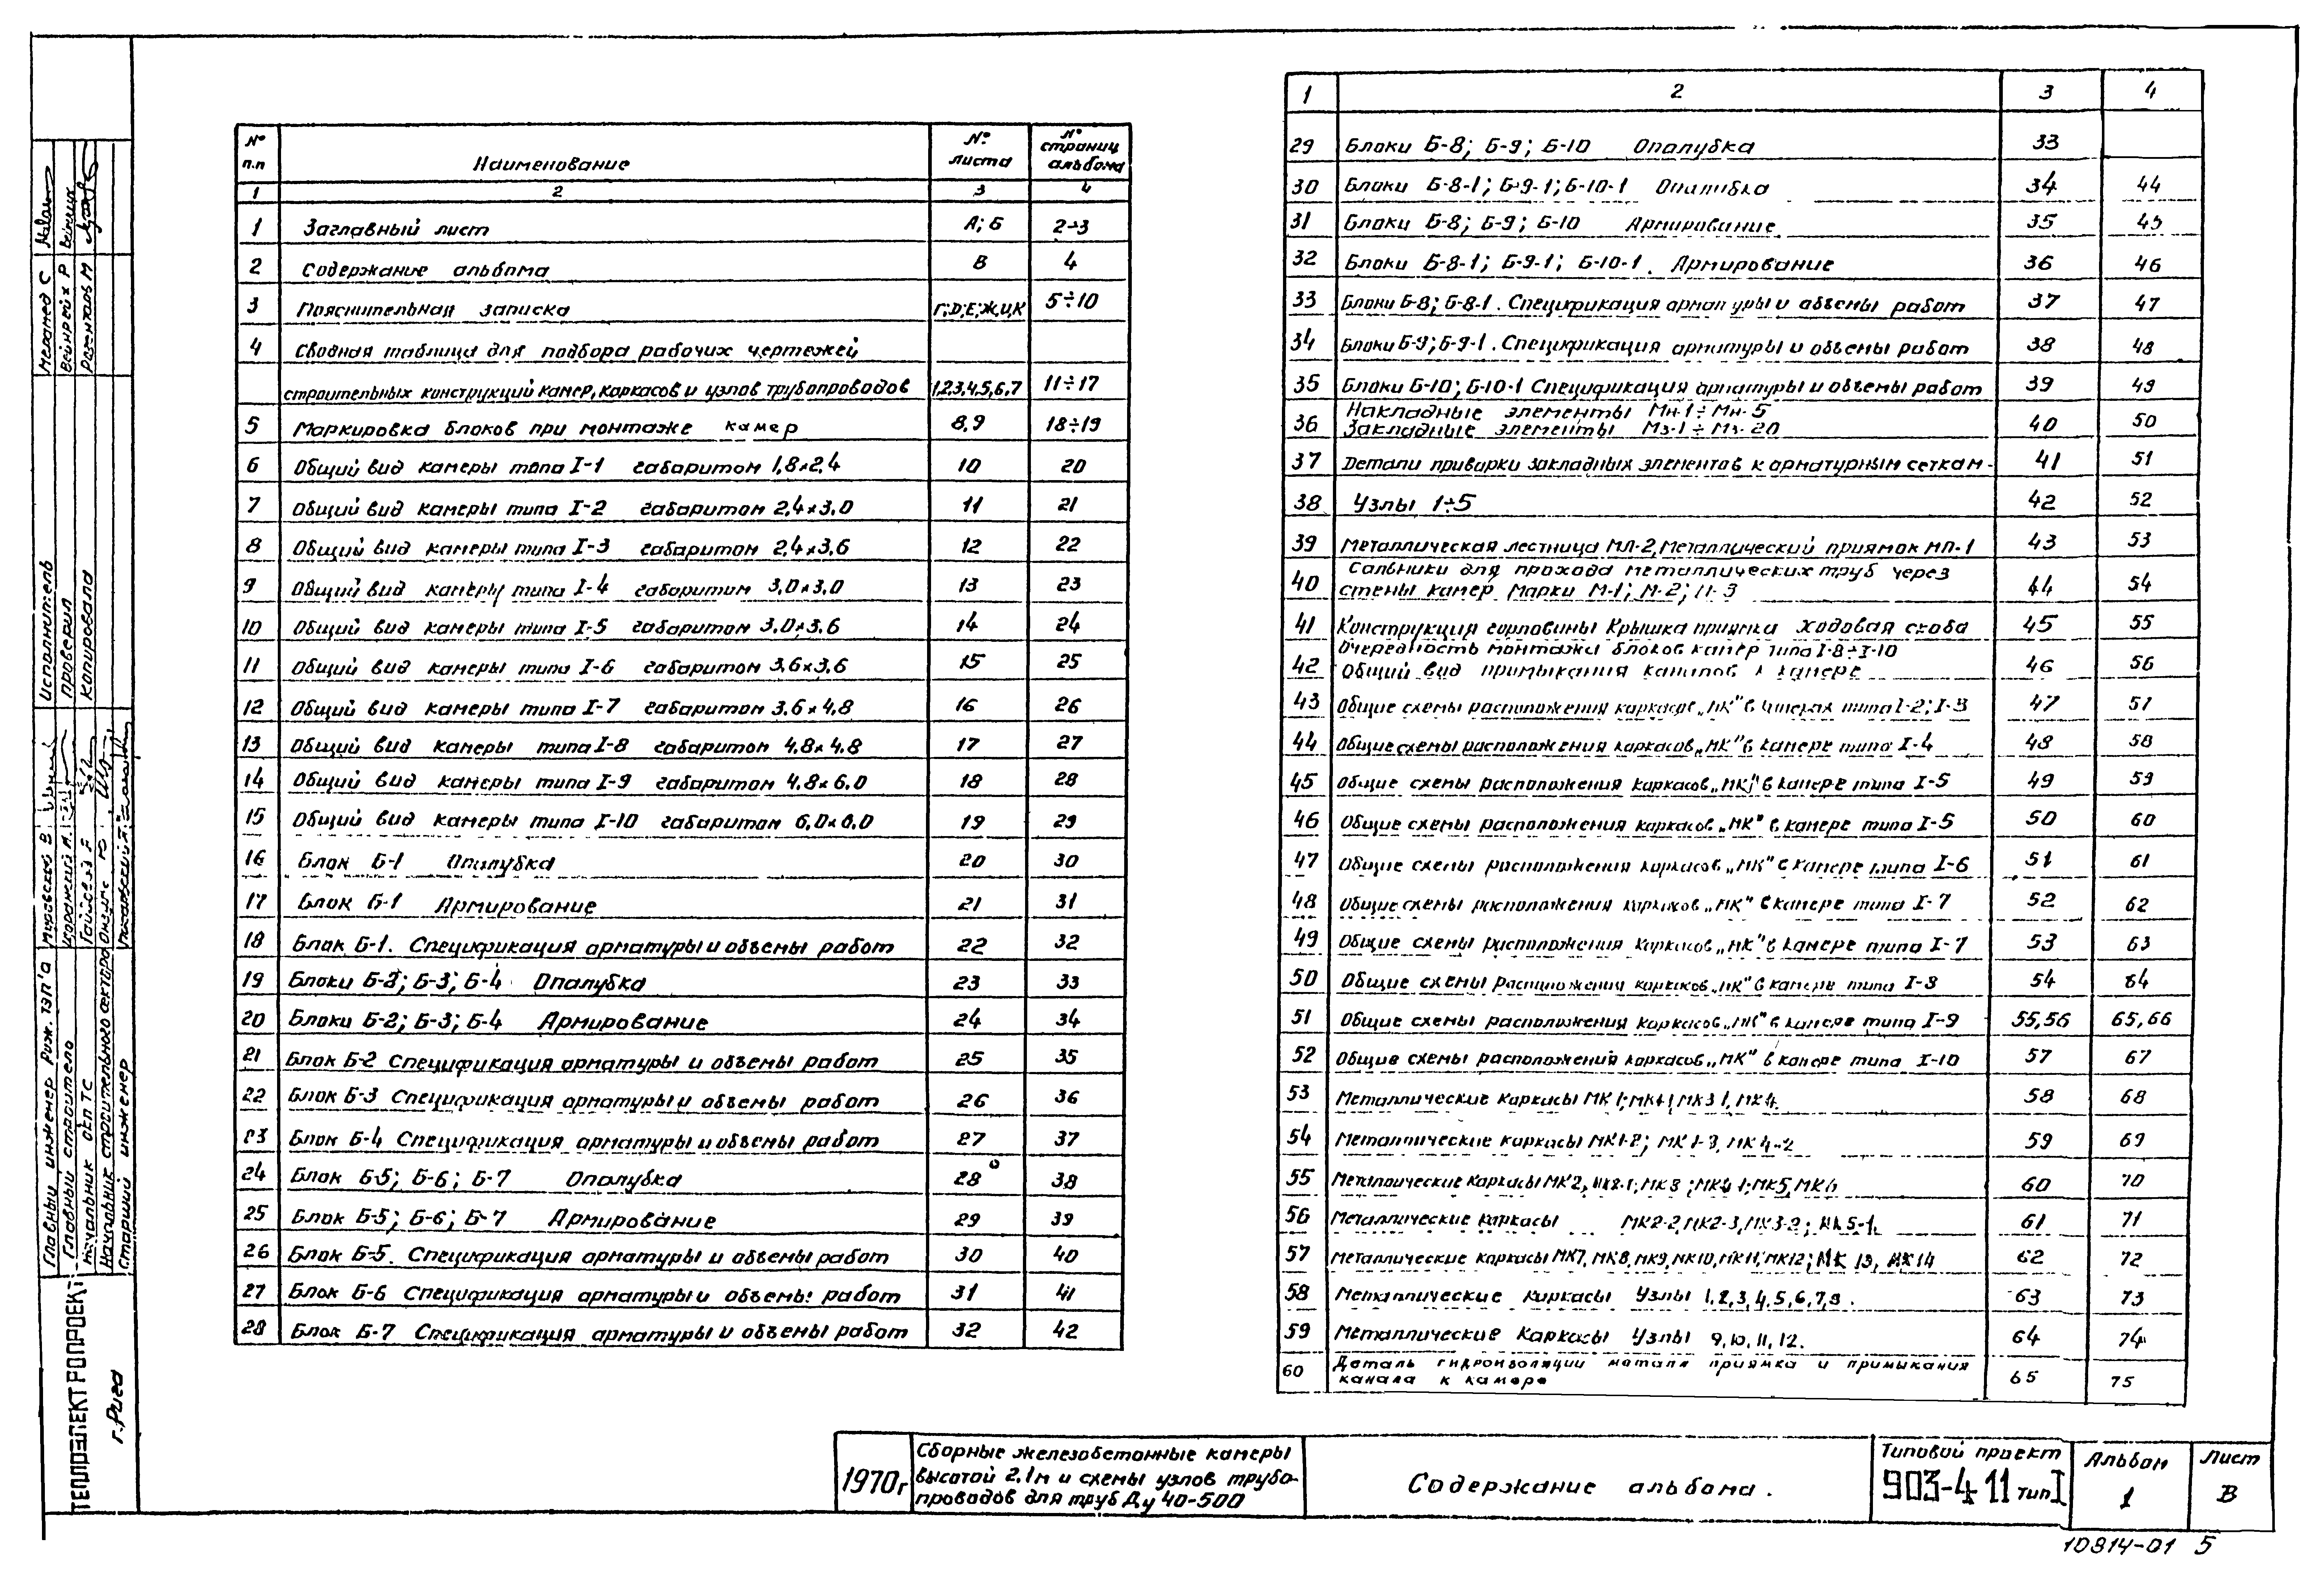 № п.п Наименование № листа № страниц альбома
1 2 3 4
1 Заглавный лист А; Б 2÷3
2 Содержание альбома В 4
3 Пояснительная записка Г;Д;Е;Ж,И,К 5÷10
4 Сводная таблица для подбора рабочих чертежей
строительных конструкций камер, каркасов и узлов трубопроводов 1,2,3,4,5,6,7 11÷17
5 Маркировка блоков при монтаже камер 8,9 18÷19
6 Общий вид камеры типа I-1 габаритом 1,8×2,4 10 20
7 Общий вид камеры типа I-2 габаритом 2,4×3,0 11 21
8 Общий вид камеры типа I-3 габаритом 2,4×3,6 12 22
9 Общий вид камеры типа I-4 габаритом 3,0×3,0 13 23
10 Общий вид камеры типа I-5 габаритом 3,0×3,6 14 24
11 Общий вид камеры типа I-6 габаритом 3,6×3,6 15 25
12 Общий вид камеры типа I-7 габаритом 3,6×4,8 16 26
13 Общий вид камеры типа I-8 габаритом 4,8×4,8 17 27
14 Общий вид камеры типа I-9 габаритом 4,8×6,0 18 28
15 Общий вид камеры типа I-10 габаритом 6,0×6,0 19 29
16 Блок Б-1 Опалубка 20 30
17 Блок Б-1 Армирование 21 31
18 Блок Б-1. Спецификация арматуры и объемы работ 22 32
19 Блоки Б-2; Б-3; Б-4 Опалубка 23 33
20 Блоки Б-2; Б-3; Б-4 Армирование 24 34
21 Блок Б-2 Спецификация арматуры и объемы работ 25 35
22 Блок Б-3 Спецификация арматуры и объемы работ 26 36
23 Блок Б-4 Спецификация арматуры и объемы работ 27 37
24 Блок Б-5; Б-6; Б-7 Опалубка 28 38
25 Блок Б-5; Б-6; Б-7 Армирование 29 39
26 Блок Б-5. Спецификация арматуры и объемы работ 30 40
27 Блок Б-6 Спецификация арматуры и объемы работ 31 41
28 Блок Б-7 Спецификация арматуры и объемы работ 32 42
1 2 3 4
29 Блоки Б-8; Б-9; Б-10 Опалубка 33
30 Блоки Б-8-1; Б-9-1; Б-10-1 Опалубка 34 44
31 Блоки Б-8; Б-9; Б-10 Армирование 35 45
32 Блоки Б-8-1; Б-9-1; Б-10-1. Армирование 36 46
33 Блоки Б-8; Б-8-1. Спецификация арматуры и объемы работ 37 47
34 Блоки Б-9; Б-9-1. Спецификация арматуры и объемы работ 38 48
35 Блоки Б-10; Б-10-1 Спецификация арматуры и объемы работ 39 49
Накладные элементы Мн-1÷Мн-5
36 Закладные элементы Мз-1÷Мз-20 40 50
37 Детали приварки закладных элементов к арматурным сеткам 41 51
38 Узлы 1÷5 42 52
39 Металлическая лестница МЛ-2, Металлический приямок МП-1 43 53
Сальники для прохода металлических труб через
40 стены камер Марки М-1; М-2; М-3 44 54
41 Конструкция горловины Крышка приямка ходовая скоба 45 55
Очередность монтажа блоков камер типа I-8÷I-10
42 Общий вид примыкания каналов к камере 46 56
43 Общие схемы расположения каркасов „МК" в камерах типа I-2; I-3 47 57
44 Общие схемы расположения каркасов „МК" в камере типа I-4 48 58
45 Общие схемы расположения каркасов „МК" в камере типа I-5 49 59
46 Общие схемы расположения каркасов „МК" в камере типа I-5 50 60
47 Общие схемы расположения каркасов „МК" в камере типа I-6 51 61
48 Общие схемы расположения каркасов „МК" в камере типа I-7 52 62
49 Общие схемы расположения каркасов „МК" в камере типа I-7 53 63
50 Общие схемы расположения каркасов „МК" в камере типа I-8 54 64
51 Общие схемы расположения каркасов „МК" в камере типа I-9 55,56 65,66
52 Общие схемы расположения каркасов „МК" в камере типа I-10 57 67
53 Металлические каркасы 58 68
54 Металлические каркасы МК1-2; МК1-3, МК4-2 59 69
55 Металлические каркасы МК2, МК2-1; МК3; МК4-1; МК5, МК6 60 70
56 Металлические каркасы МК2-2, МК2-3, МК3-2; МК5-1. 61 71
57 Металлические каркасы МК7, МК8, МК9, МК10, МК11, МК12; МК 13, МК14 62 72
58 Металлические каркасы Узлы 1,2,3,4,5,6,7,8. 63 73
59 Металлические каркасы Узлы 9,10,11,12. 64 74
60 Деталь гидроизоляции металл приямка и примыкания
канала к камере 65 75
1970г
Сборные железобетонные камеры
высотой 2,1м и схемы узлов трубо-
проводов для труб Ду 40-500
Содержание альбома.
Типовой проект
903-4-11 тип I
Альбом
1
Лист
В
10814-01 5
ТЕПЛОЭЛЕКТРОПРОЕКТ
г. Рига
Главный инженер Риж. ТЭП'а
Главный строитель
Начальник ОКП ТС
Начальник строительного сектора
Старший инженер
Исполнитель Меламед С
Проверил Вейнрейх Р
Копировала Розенталь М